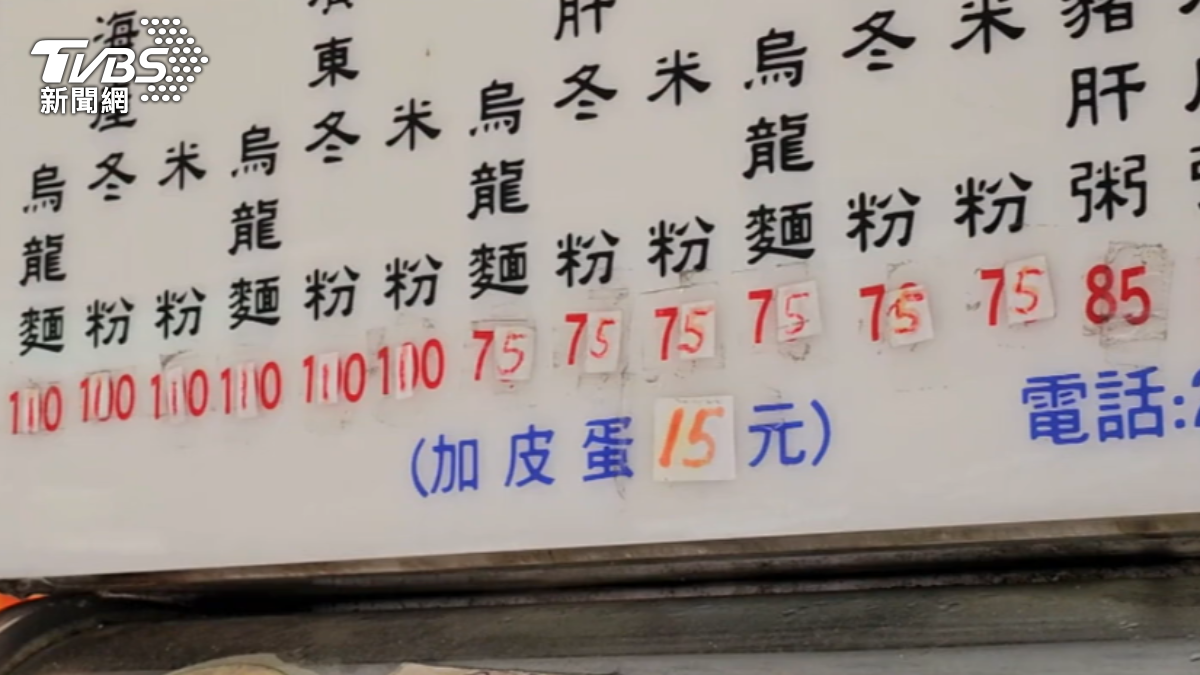 TVBS
新聞網
豬肝粥 85
米粉 75
冬粉 75
烏龍麵 75
米粉 75
肝冬粉 75
烏龍麵 75
米粉 100
東冬粉 100
烏龍麵 110
米粉 110
海產冬粉 100
烏龍麵 110
(加皮蛋15元)
電話: